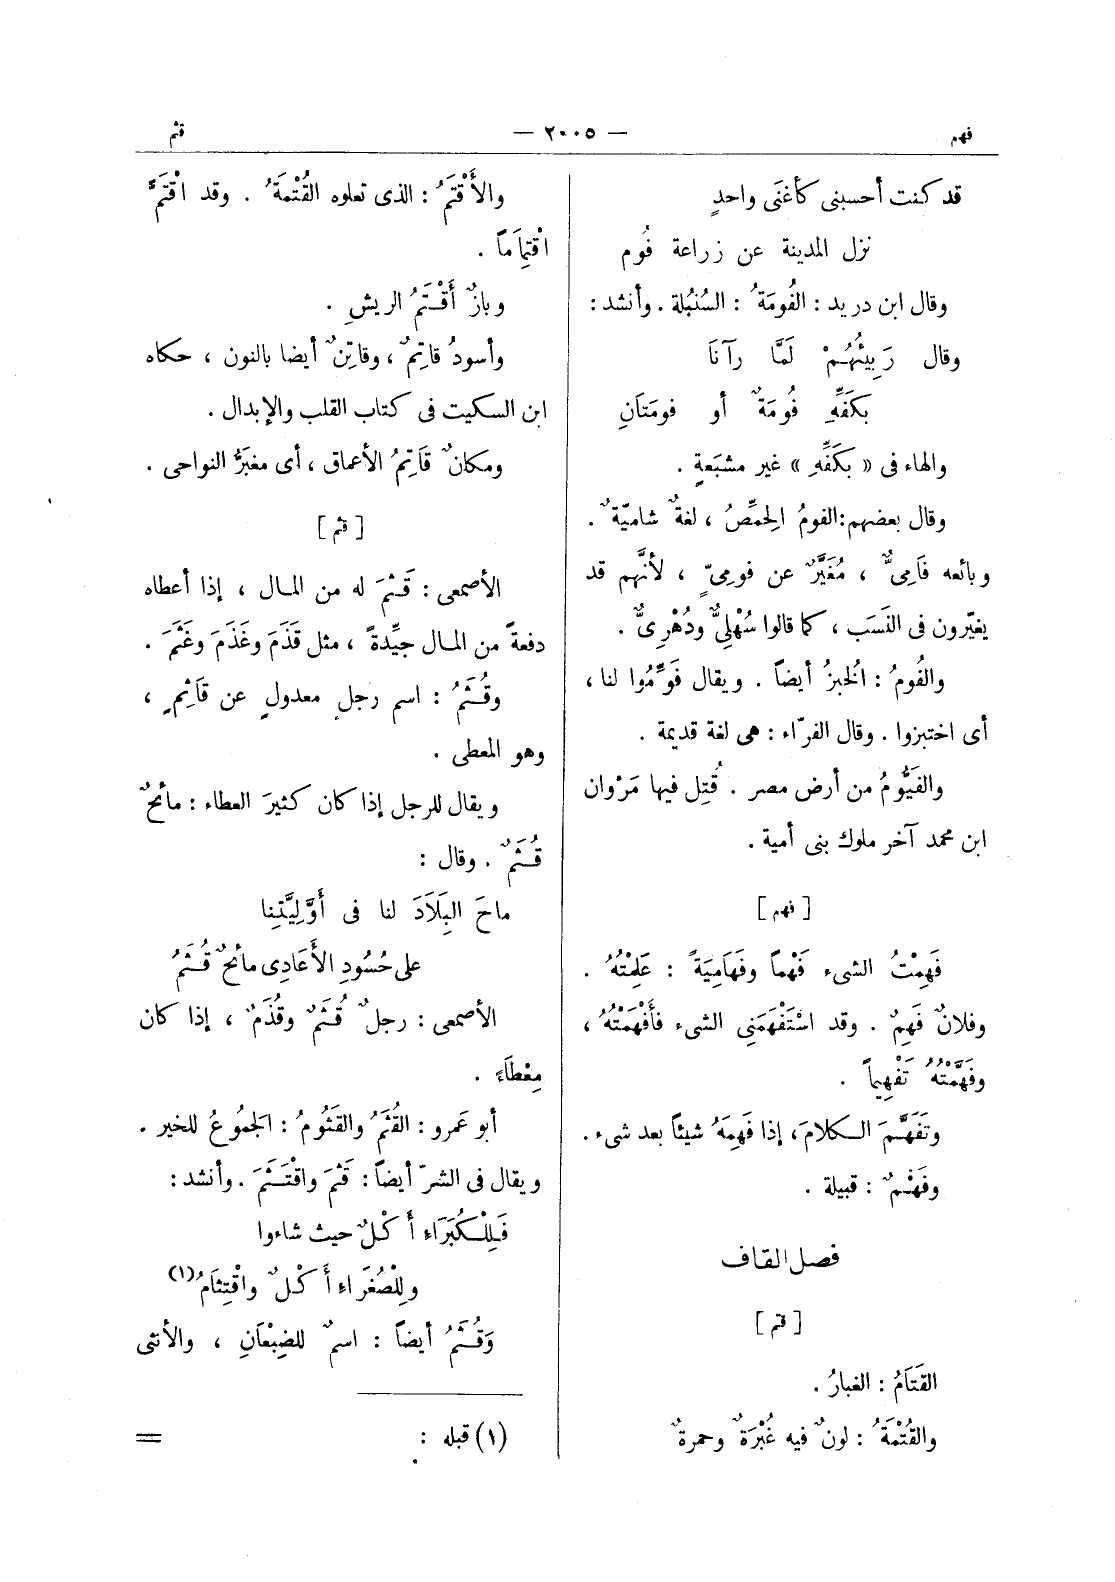 فهم — ٢٠٠٥ — قثم
قد كنت أحسبنى كأغنَى واحدٍ
نزل المدينة عن زراعة فُوم
وقال ابن دريد : الفُومَةُ : السُنْبُلة . وأنشد :
وقال رَبِيئُهُمْ لَمَّا رآنَا
بكَفِّهِ فُومَةٌ أو فومَتَانِ
والهاء فى « بكَفِّهِ » غير مشبَعةٍ .
وقال بعضهم : الفومُ الحِمَّصُ ، لغةٌ شاميّةٌ .
وبائعه فَامِىٌّ ، مُغَيَّرٌ عن فومِىٍّ ، لأنَّهم قد
يغيّرون فى النَسَب ، كما قالوا سُهْلِىٌّ ودُهْرِىٌّ .
والفُومُ : الخبزُ أيضاً . ويقال فَوِّمُوا لنا ،
أى اختبزوا . وقال الفرّاء : هى لغة قديمة .
والفَيُّومُ من أرض مصر . قُتِل فيها مَرْوان
ابن محمد آخر ملوك بنى أمية .
[ فهم ]
فَهِمْتُ الشىء فَهْماً وفَهَامِيَةً : عَلِمْتُهُ .
وفلانٌ فَهِمٌ . وقد اسْتَفْهَمَنِى الشىء فأَفْهَمْتُهُ ،
وفَهَّمْتُهُ تَفْهِيماً .
وتَفَهَّمَ الكلامَ، إذا فَهِمَهُ شيئاً بعد شىء .
وفَهْمٌ : قبيلة .
فصل القاف
[ قتم ]
القَتَامُ : الغبارُ .
والقُتْمَةُ : لونٌ فيه غُبْرَةٌ وحمرةٌ
والأَقْتَمُ : الذى تعلوه القُتْمَةُ . وقد اقْتَمَّ
اقْتِمَاماً .
وبازٌ أَقْتَمُ الريشِ .
وأسودُ قاتِمٌ ، وقاتِنٌ أيضا بالنون ، حكاه
ابن السكيت فى كتاب القلب والإبدال .
ومكانٌ قَاتِمُ الأعماق ، أى مغبَرُّ النواحى .
[ قثم ]
الأصمعى : قَثَمَ له من المال ، إذا أعطاه
دفعةً من المال جيِّدةً ، مثل قَذَمَ وغَذَمَ وغَثَمَ .
وقُثَمُ : اسم رجلٍ معدولٍ عن قَاثِمٍ ،
وهو المعطى .
ويقال للرجل إذا كان كثيرَ العطاء : مائحٌ
قُثَمٌ . وقال :
ماحَ البِلَادَ لنا فى أَوَّلِيَّتِنا
على حُسُودِ الأَعَادِى مائحٌ قُثَمُ
الأصمعى : رجلٌ قُثَمٌ وقُذَمٌ ، إذا كان
مِعْطَاءً .
أبو عَمرو : القُثَمُ والقَثُومُ : الجَمُوعُ للخير .
ويقال فى الشرّ أيضاً : قَثَمَ واقْتَثَمَ . وأنشد :
فَلِلْكُبَرَاءِ أَكْلٌ حيث شاءوا
ولِلصُغَرَاءِ أَكْلٌ واقْتِثَامُ(١)
وَقُثَمُ أيضاً : اسمٌ للضِبْعَانِ ، والأنثى
(١) قبله :
=